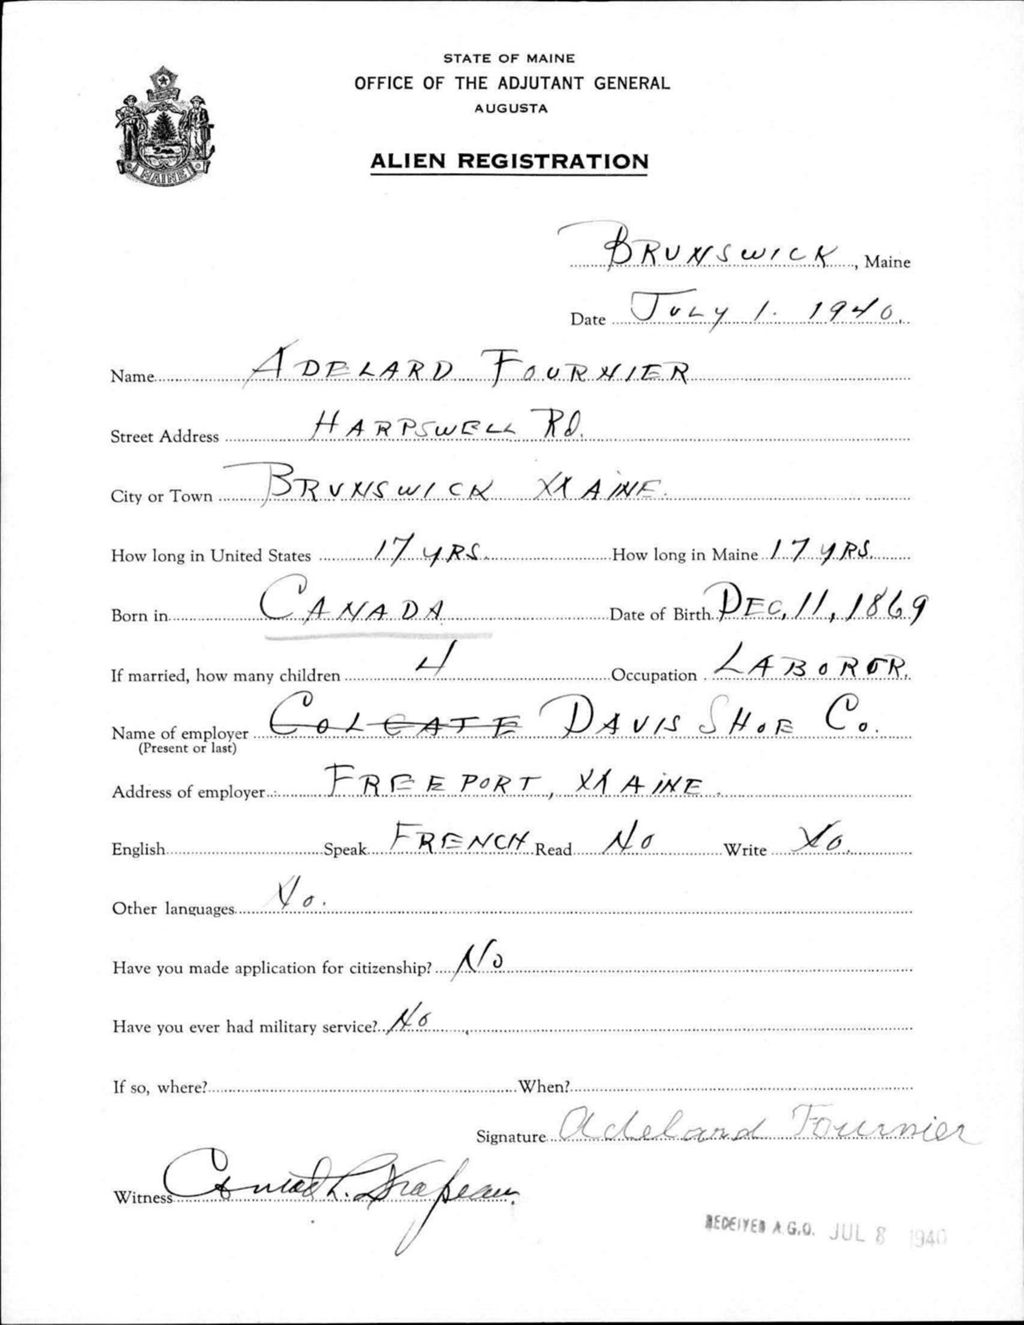 STATE OF MAINE
OFFICE OF THE ADJUTANT GENERAL
AUGUSTA
ALIEN REGISTRATION
MAINE
BRUNSWICK, Maine
Date JULY 1. 1940.
Name ADELARD FOURNIER
Street Address HARPSWELL RD.
City or Town BRUNSWICK MAINE.
How long in United States 17 YRS. How long in Maine 17 YRS.
Born in CANADA Date of Birth DEC, 11, 1869
If married, how many children 4 Occupation LABORER.
Name of employer COLGATE DAVIS SHOE Co.
(Present or last)
Address of employer FREEPORT, MAINE.
English Speak FRENCH Read No Write No.
Other languages No.
Have you made application for citizenship? No
Have you ever had military service? No
If so, where? When?
Signature Adelard Fournier
Witness L.
RECEIVED A.G.O. JUL 8 1940